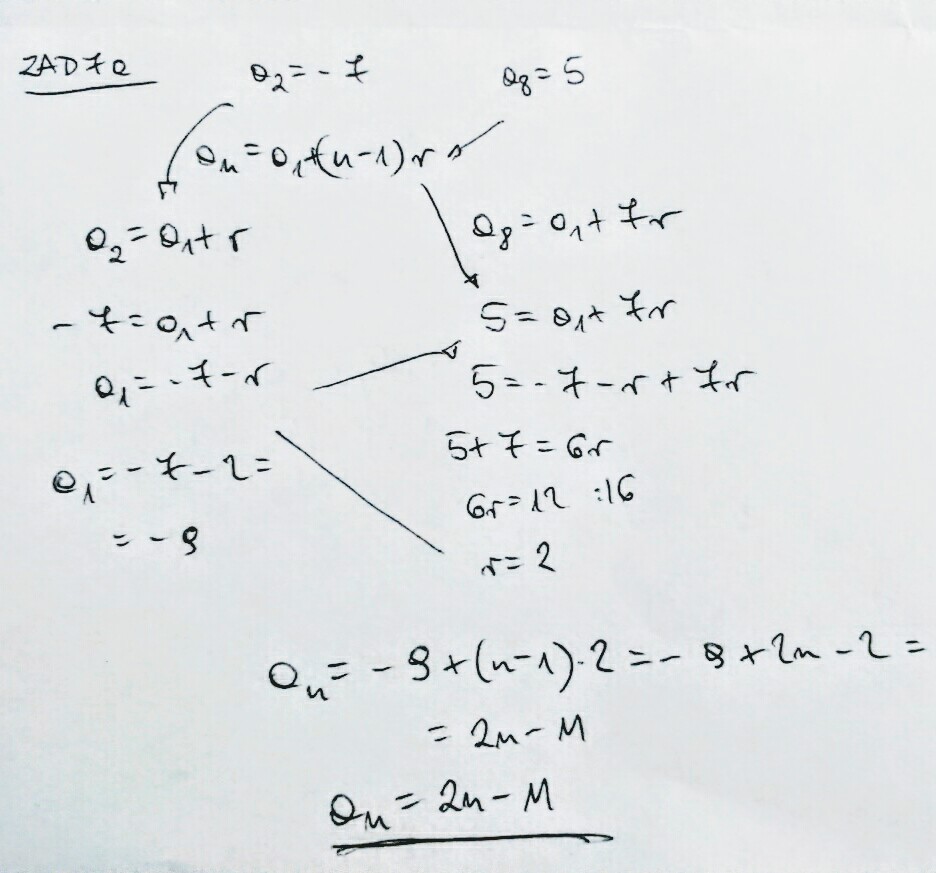 ZAD 7a
a₂ = -7 a₈ = 5
aₙ = a₁+(n-1)r
a₂ = a₁+ r
-7 = a₁ + r
a₁ = -7-r
a₁ = -7-2 =
= -9
a₈ = a₁+ 7r
5 = a₁+ 7r
5 = -7-r+7r
5+7 = 6r
6r = 12 :16
r = 2
aₙ = -9+(n-1)·2 = -9+2n-2 =
= 2n-11
aₙ = 2n-11